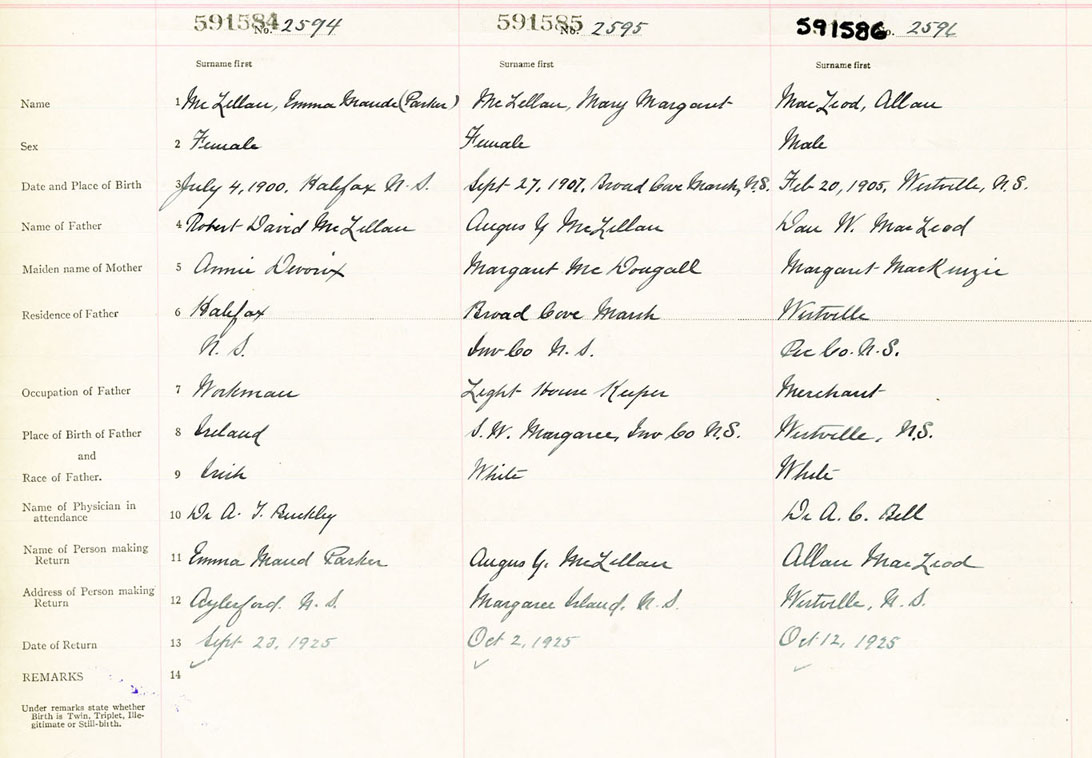 591584 No. 2594 591585 No. 2595 591586 No. 2596
Surname first Surname first Surname first
Name 1 McLellan, Emma Maude (Parker) McLellan, Mary Margaret MacLeod, Allan
Sex 2 Female Female Male
Date and Place of Birth 3 July 4, 1900, Halifax N.S. Sept 27, 1907, Broad Cove Marsh, N.S. Feb 20, 1905, Westville, N.S.
Name of Father 4 Robert David McLellan Angus Y McLellan Dan W. MacLeod
Maiden name of Mother 5 Annie Margaret McDougall Margaret MacKenzie
Residence of Father 6 Halifax Broad Cove Marsh Westville
N.S. Inv Co N.S. Pic Co. N.S.
Occupation of Father 7 Workman Light House Keeper Merchant
Place of Birth of Father 8 Ireland S.W. Margaree, Inv Co N.S. Westville, N.S.
and
Race of Father. 9 Irish White White
Name of Physician in
attendance 10 Dr A. J. Buckley Dr A. C. Bell
Name of Person making
Return 11 Emma Maud Parker Angus Y. McLellan Allan MacLeod
Address of Person making
Return 12 Aylesford. N.S. Margaree Island. N.S. Westville, N.S.
Date of Return 13 Sept 23, 1925 Oct 2, 1925 Oct 12, 1925
REMARKS 14
Under remarks state whether
Birth is Twin, Triplet, Ille-
gitimate or Still-birth.